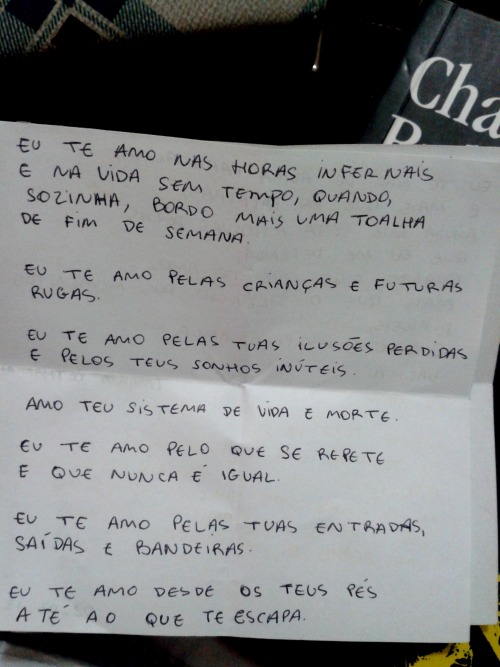 Cha
EU TE AMO NAS HORAS INFERNAIS
E NA VIDA SEM TEMPO, QUANDO,
SOZINHA, BORDO MAIS UMA TOALHA
DE FIM DE SEMANA.
EU TE AMO PELAS CRIANÇAS E FUTURAS
RUGAS.
EU TE AMO PELAS TUAS ILUSÕES PERDIDAS
E PELOS TEUS SONHOS INÚTEIS.
AMO TEU SISTEMA DE VIDA E MORTE.
EU TE AMO PELO QUE SE REPETE
E QUE NUNCA É IGUAL.
EU TE AMO PELAS TUAS ENTRADAS,
SAÍDAS E BANDEIRAS.
EU TE AMO DESDE OS TEUS PÉS
ATÉ AO QUE TE ESCAPA.